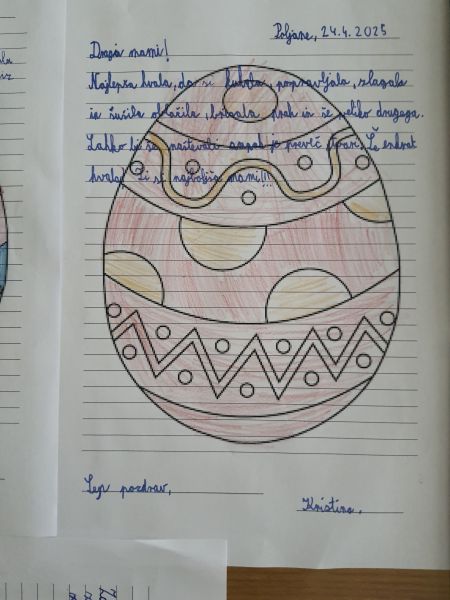 Poljane, 24.4. 2025
Draga mami!
Najlepša hvala, da si kuhala, popravljala, zlagala
in sušila oblačila, brisala prah in še veliko drugega.
Lahko bi še naštevala ampak je preveč stvari. Še enkrat
hvala! Ti si najboljša mami!!!
Lep pozdrav,
Kristina.